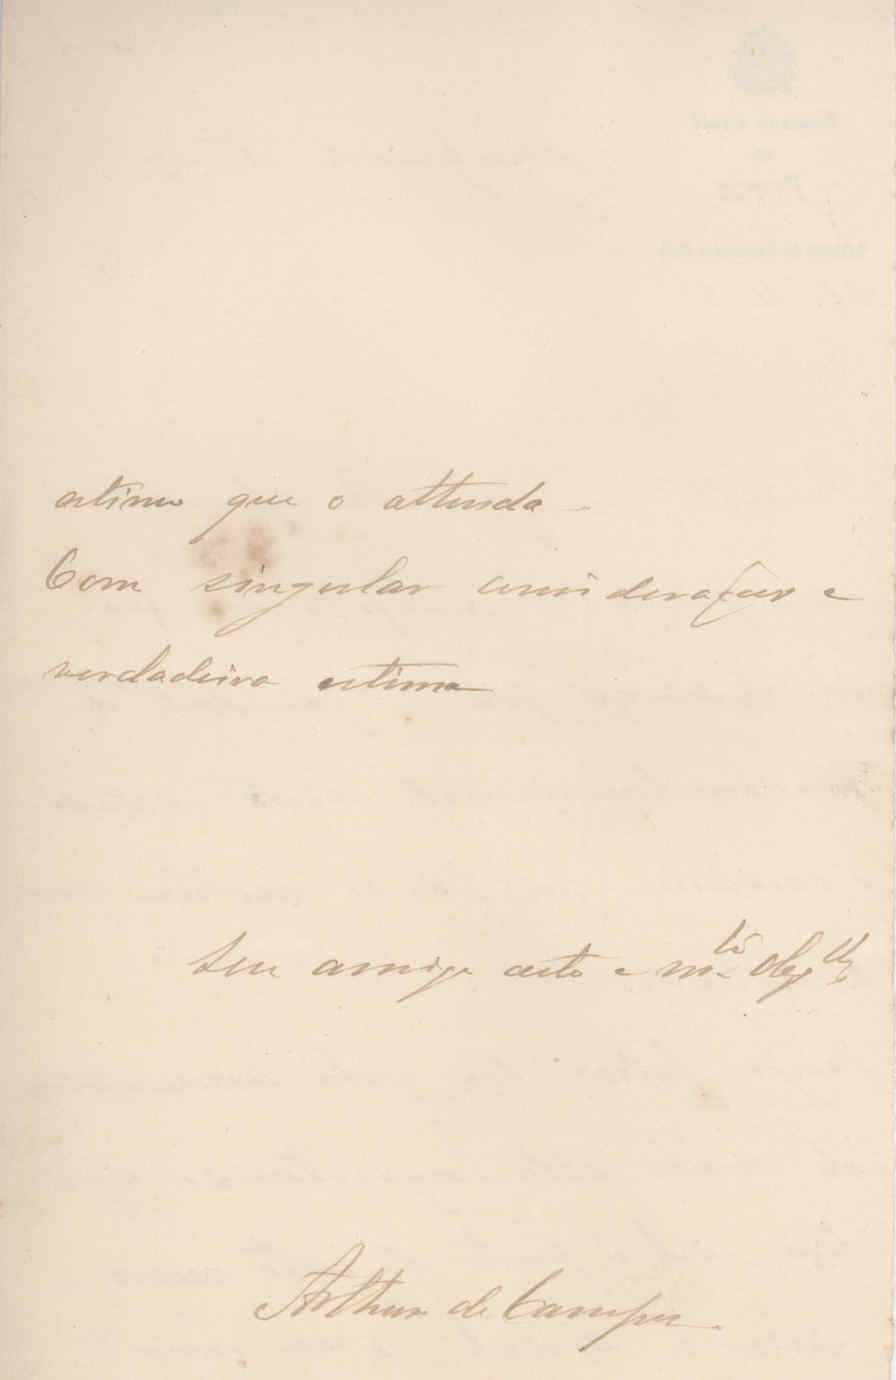 estimo que o attenda.
Com singular consideração e
verdadeira estima
Seu amigo certo e m.to obgdo
Arthur de Campos.